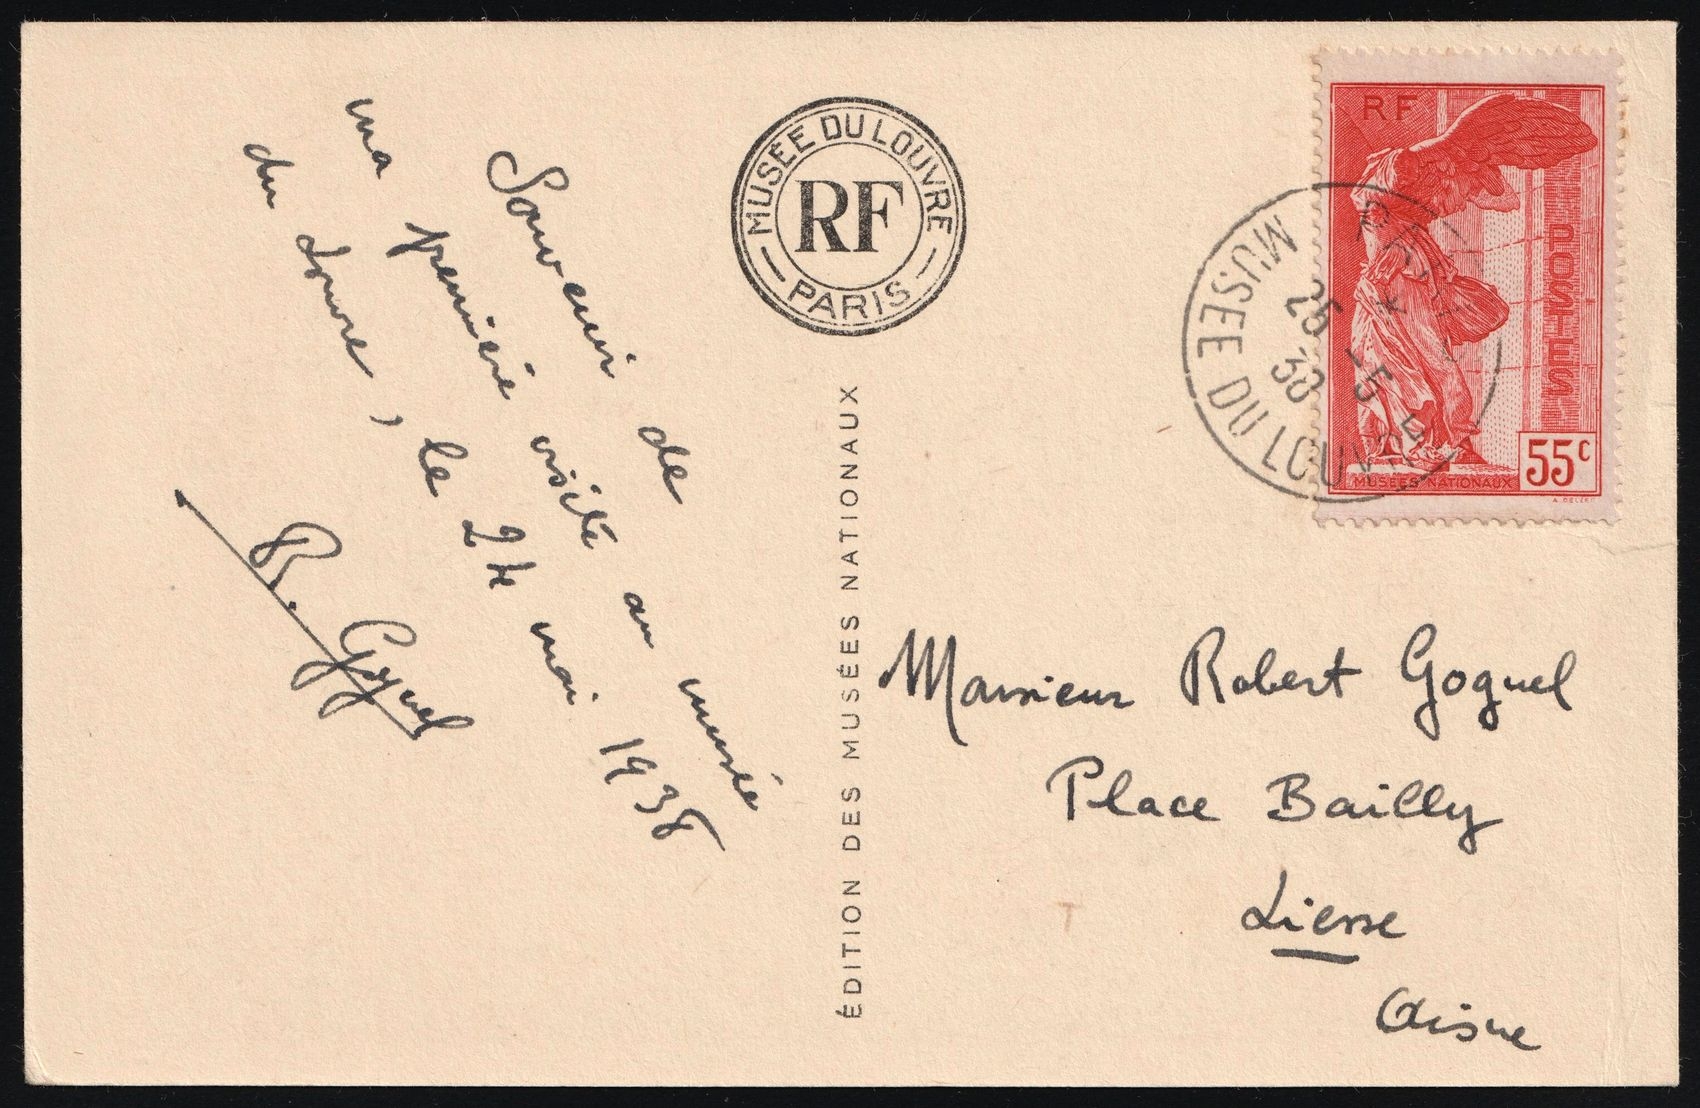 Souvenir de
ma première visite au musée
du Louvre, le 24 mai 1938
R. Goguel
MUSÉE DU LOUVRE
RF
PARIS
ÉDITION DES MUSÉES NATIONAUX
RF
POSTES
55c
MUSÉES NATIONAUX
MUSEE DU LOUVRE
25 -5
38
Monsieur Robert Goguel
Place Bailly
Liesse
Aisne